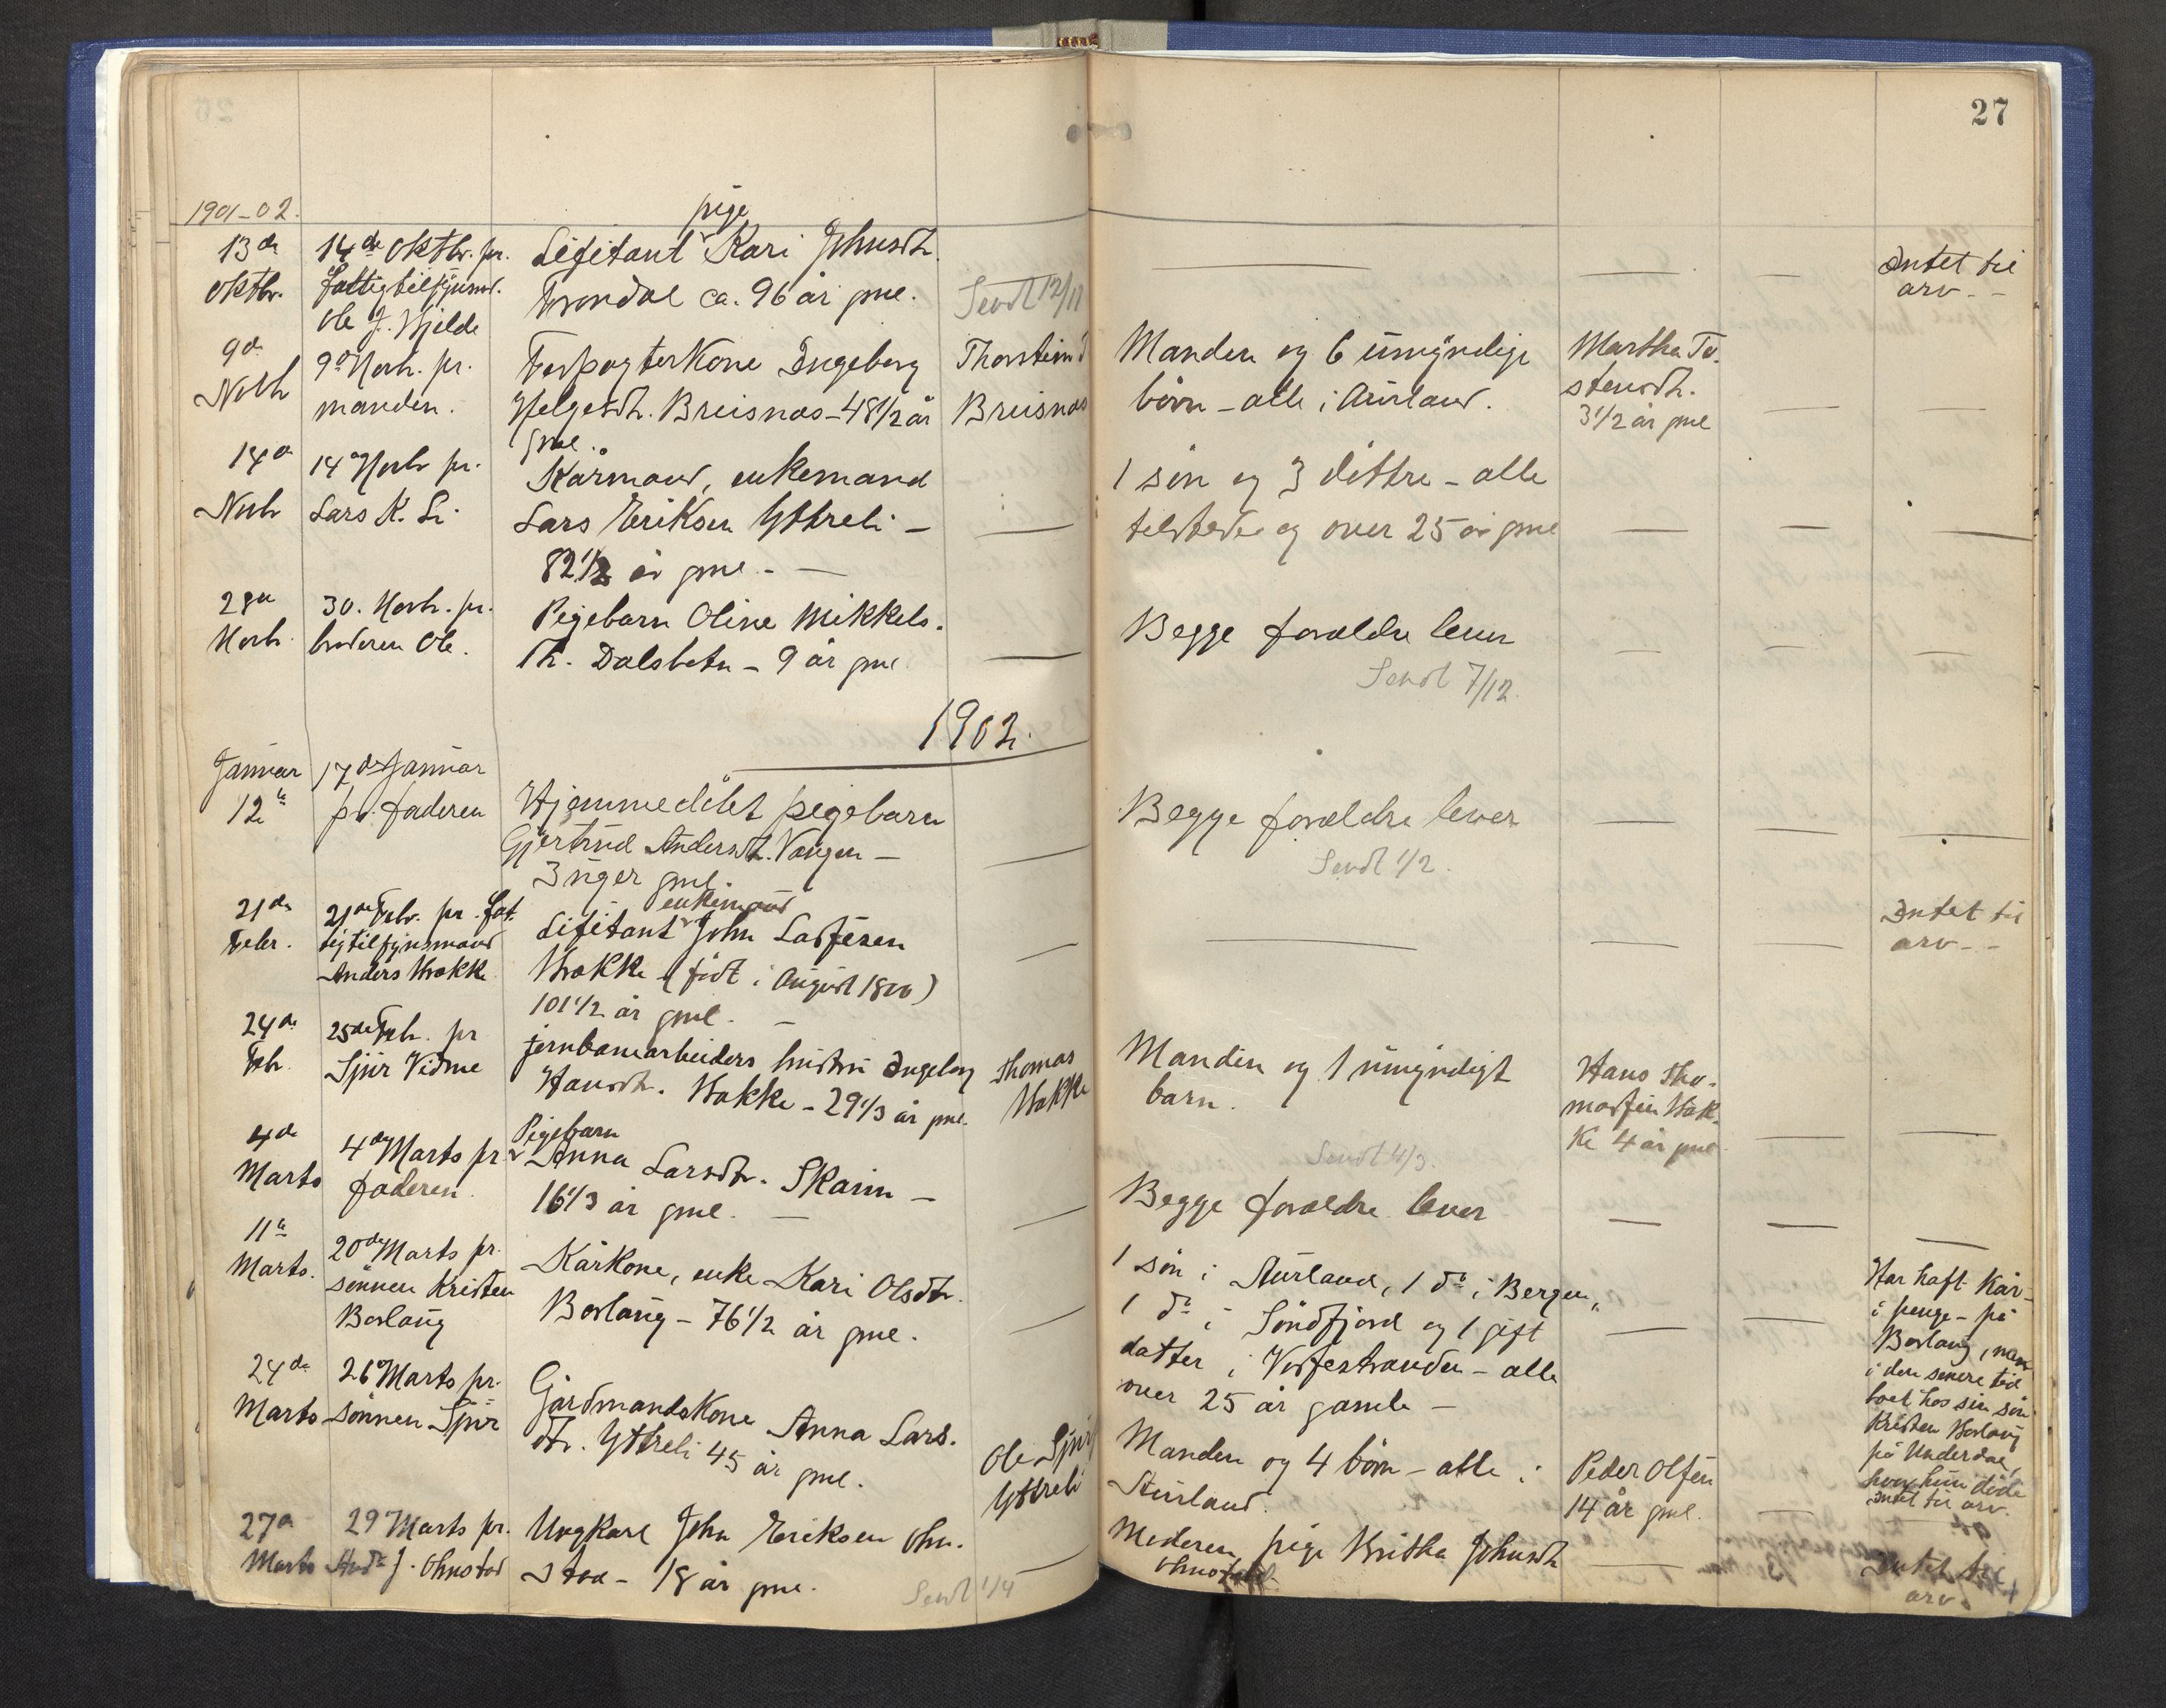 27
1901-02.
pige
13de 14de Oktbr. pr. Lægdslem Kari Johnsdtr.
Oktbr. fattigtilsynsm. Frondal ca. 96 år gml. Sendt 12/11
Ole J. Hjelde
Intet til
arv.
9de 9de Novb. pr. Forpagterkone Ingeborg Thorstein
Novb manden. Helgesdtr. Breisnæs - 48 1/2 år Breisnæs
gml.
Manden og 6 umyndige
børn - alle i Aurland.
Martha To-
stensdtr.
3 1/2 år gml
14de 14de Novb pr. Kårmand, enkemand
Novb Lars K. Li Lars Eriksen Yttreli -
82 1/2 år gml. -
1 søn og 3 døttre - alle
tilstede og over 25 år gml
28de 30. Novb. pr. Pigebarn Oline Mikkels-
Novb. broderen Ole. dtr. Dalsbotn - 9 år gml
Begge forældre lever
Sendt 7/12.
1902.
Januar 17de Januar
12te pr. faderen Hjemmedøbt pigebarn
Gjertrud Andersdtr. Vangen -
3 uger gml.
Begge forældre lever
Sendt 1/2.
enkemand
21de 21de Febr. pr. fat- John Lassesen
Febr. tigtilsynsmand
Anders Stokke (født i August 1800)
101 1/2 år gml. -
Intet til
arv.
24de 25de Feb. pr jernbanearbeiders hustru Ingeborg Thomas
Feb. Sjur Vidme Hansdtr. - 29 1/3 år gml.
Manden og 1 umyndigt
barn.
Hans Tho-
massen
4 år gml
Sendt 4/3.
4de 4de Marts pr Pigebarn
Marts faderen. Anna Larsdtr. Skaim -
16 1/3 år gml. -
Begge forældre lever
11te 20de Marts pr. Kårkone, enke Kari Olsdtr.
Marts. sønnen Kristen Borlaug - 76 1/2 år gml.
Borlaug
1 søn i Aurland, 1 do i Bergen,
1 do i Søndfjord og 1 gift
datter i Vossestranden - alle
over 25 år gamle -
Har haft kår -
i penge - på
Borlaug, men
i den senere tid
boet hos sin søn
Kristen Borlaug
på Underdal,
hvor hun døde
Intet til arv.
24de 26de Marts pr. Gårdmandskone Anna Lars-
Marts sønnen Sjur dtr. Yttreli 45 år gml. Ole Sjurs
Yttreli
Manden og 4 børn - alle i
Aurland.
Peder Olsen
14 år gml.
27de 29 Marts pr. Ungkarl John Eriksen Ohn-
Marts And. J. Ohnstad stad - 18 år gml. Sendt 1/4
Moderen, pige Britha Johnsdtr
Ohnstad
Intet til
arv.